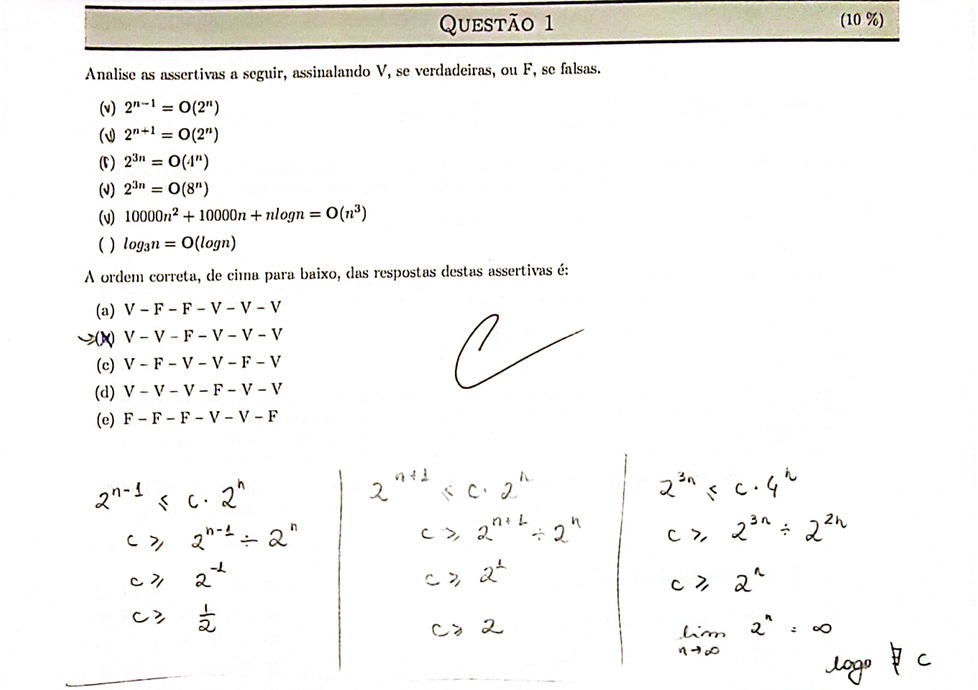 QUESTÃO 1 (10 %)
Analise as assertivas a seguir, assinalando V, se verdadeiras, ou F, se falsas.
(v) 2ⁿ⁻¹ = O(2ⁿ)
(v) 2ⁿ⁺¹ = O(2ⁿ)
(f) 2³ⁿ = O(4ⁿ)
(v) 2³ⁿ = O(8ⁿ)
(v) 10000n² + 10000n + nlogn = O(n³)
( ) log₃n = O(logn)
A ordem correta, de cima para baixo, das respostas destas assertivas é:
(a) V – F – F – V – V – V
→(X) V – V – F – V – V – V
(c) V – F – V – V – F – V
(d) V – V – V – F – V – V
(e) F – F – F – V – V – F
C
2ⁿ⁻¹ ≤ c · 2ⁿ
c ≥ 2ⁿ⁻¹ ÷ 2ⁿ
c ≥ 2⁻¹
c ≥ 1/2
2ⁿ⁺¹ ≤ c · 2ⁿ
c ≥ 2ⁿ⁺¹ ÷ 2ⁿ
c ≥ 2¹
c ≥ 2
2³ⁿ ≤ c · 4ⁿ
c ≥ 2³ⁿ ÷ 2²ⁿ
c ≥ 2ⁿ
lim n→∞ 2ⁿ = ∞
logo ∄ c